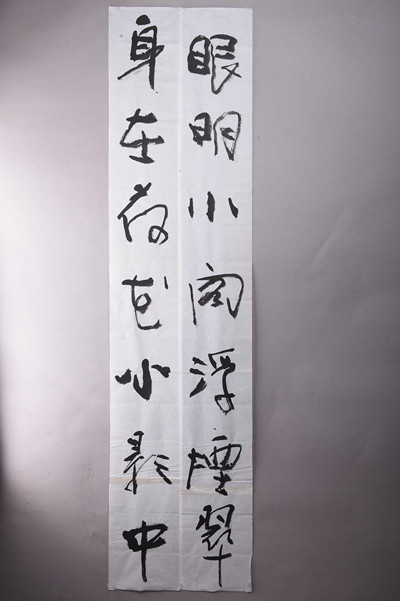 眼明小閣浮煙翠
身在荷花水影中